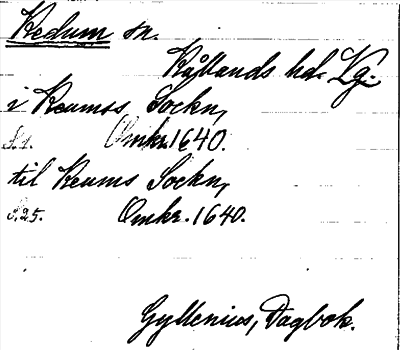 Kedum sn.
Kållands hd. Vg.
i Keumss Sockn,
S.1. Omkr. 1640.
til Keums Sockn,
S.25. Omkr. 1640.
Gyllenius, Dagbok.